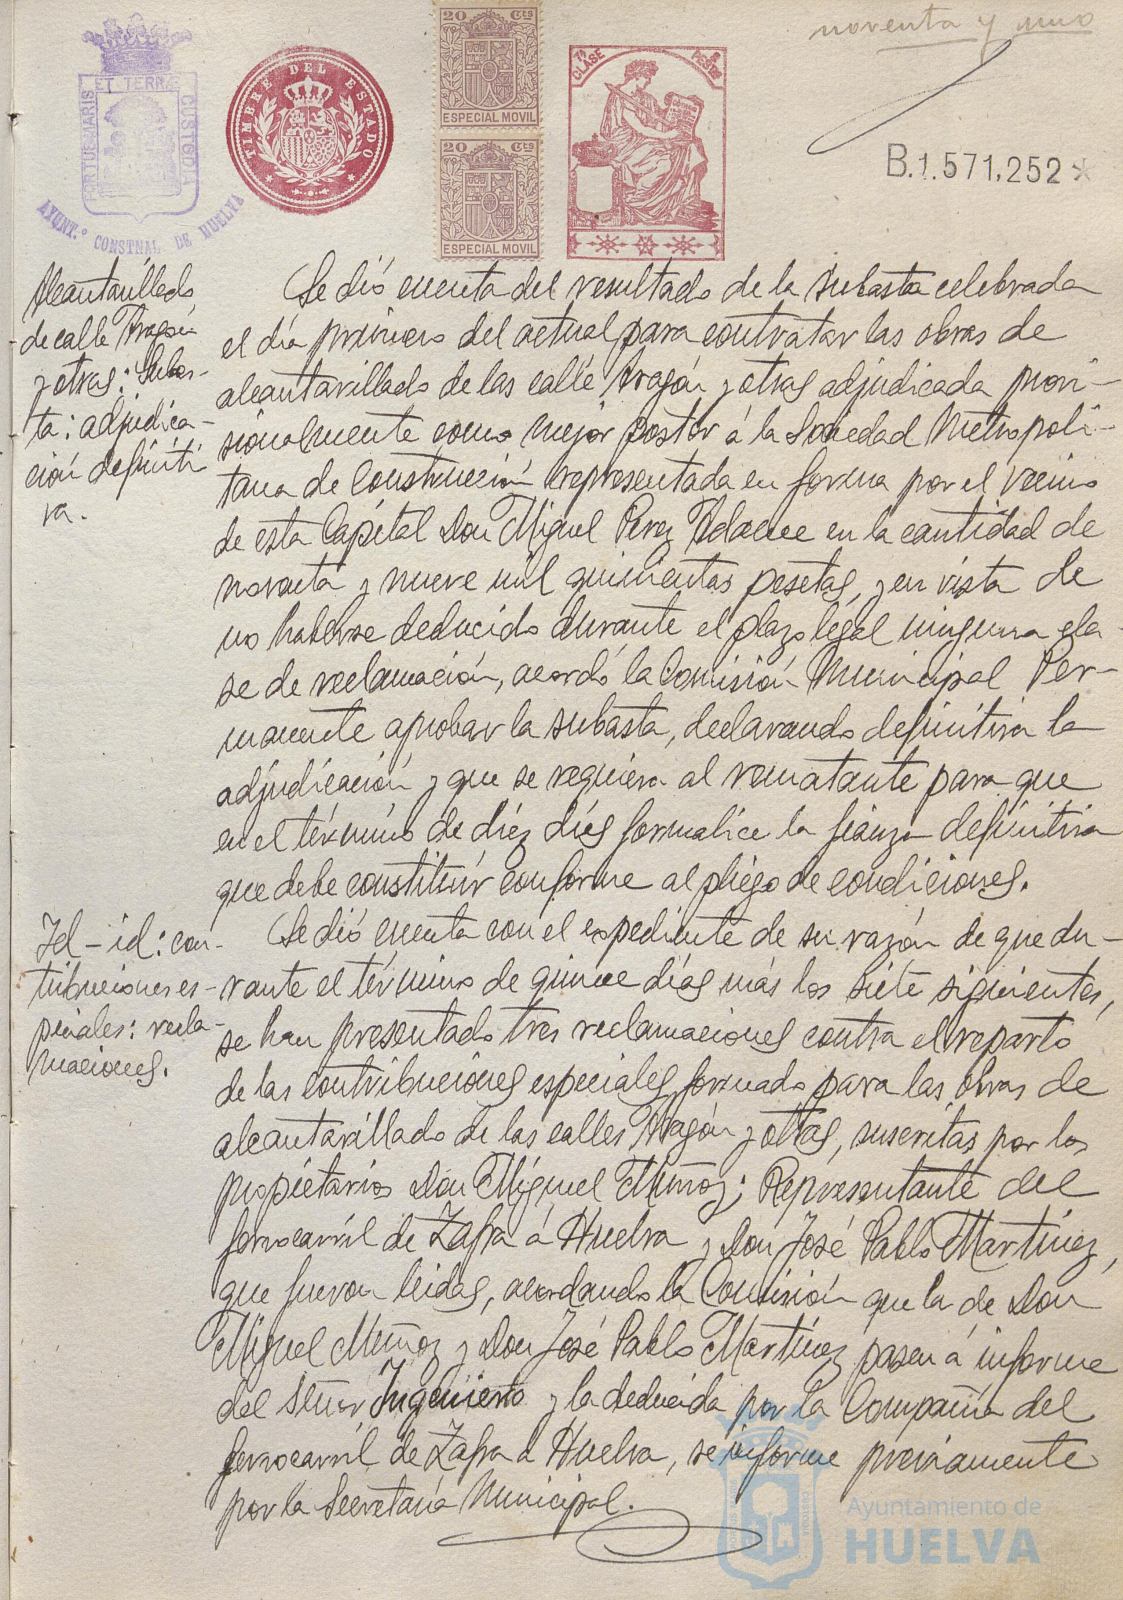 noventa y uno
PORTUS MARIS ET TERRÆ CUSTODIA
AYUNT.º CONSTNAL DE HUELVA
TIMBRE DEL ESTADO
20 Cts
ESPECIAL MOVIL
20 Cts
ESPECIAL MOVIL
7ª CLASE
B.1.571,252
Alcantarillado
de calle Aragón
y otras: Subas-
ta: adjudica-
ción definiti
va.
Se dió cuenta del resultado de la subasta celebrada
el día primero del actual para contratar las obras de
alcantarillado de las calle Aragón y otras adjudicada provi-
sionalmente como mejor postor á la Sociedad Metropoli-
tana de Construcción representada en forma por el vecino
de esta Capital Don Miguel Perez en la cantidad de
noventa y nueve mil quinientas pesetas, y en vista de
no haberse deducido durante el plazo legal ninguna cla-
se de reclamación, acordó la Comisión Municipal Per-
manente aprobar la subasta, declarando definitiva la
adjudicación y que se requiera al rematante para que
en el término de diez días formalice la fianza definitiva
que debe constituir conforme al pliego de condiciones.
Id-id: con-
tribuciones es-
peciales: recla-
maciones.
Se dió cuenta con el expediente de su razón de que du-
rante el término de quince días más los siete siguientes,
se han presentado tres reclamaciones contra el reparto
de las contribuciones especiales formado para las obras de
alcantarillado de las calles Aragón y otras, suscritas por los
propietarios Don Miguel Muñoz; Representante del
ferrocarril de Zafra á Huelva y Don José Pablo Martínez,
que fueron leidas, acordando la Comisión que la de Don
Miguel Muñoz y Don José Pablo Martínez pasen á informe
del señor Ingeniero y la deducida por la Compañía del
ferrocarril de Zafra á Huelva, se informe previamente
por la Secretaría Municipal.
Ayuntamiento de
HUELVA